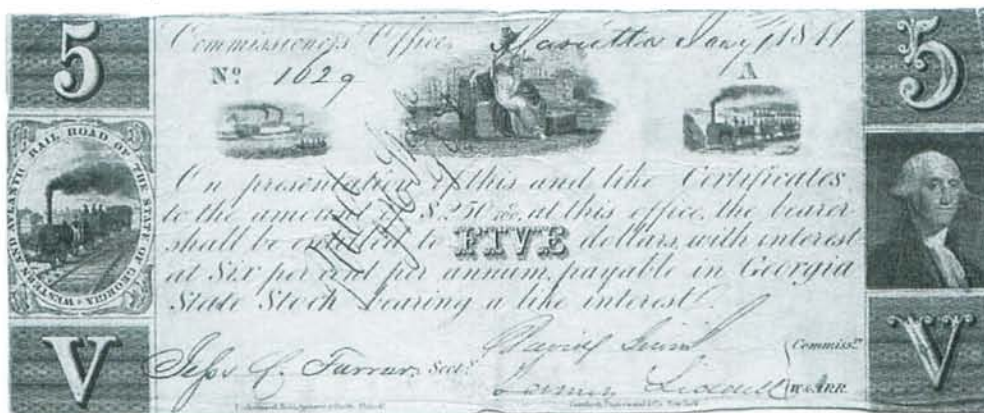 5
5
Commissioners Office, Marietta Jany 1 1841
No 1629
A
WESTERN AND ATLANTIC RAIL ROAD OF THE STATE OF GEORGIA
On presentation of this and like Certificates
to the amount of $250 at this office, the bearer
shall be entitled to FIVE dollars, with interest
at Six per cent per annum, payable in Georgia
State Stock bearing a like interest.
V
V
C. Farrar, Secty.
David Irwin
Commissrs.
W&ARR.